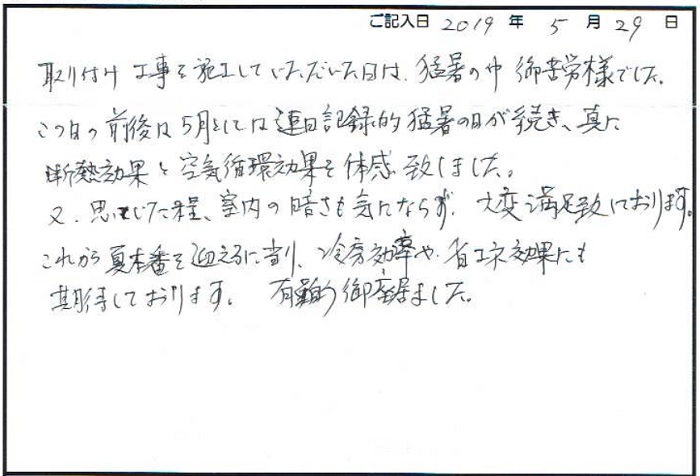 ご記入日 2019 年 5 月 29 日
取り付け工事を施工していただいた日は、猛暑の中御苦労様でした。
この日の前後は5月としては連日記録的猛暑の日が続き、真に
断熱効果と空気循環効果を体感致しました。
又、思っていた程、室内の暗さも気にならず、大変満足致しております。
これから夏本番を迎えるに当り、冷房効率や省エネ効果にも
期待しております。 有難う御座居ました。